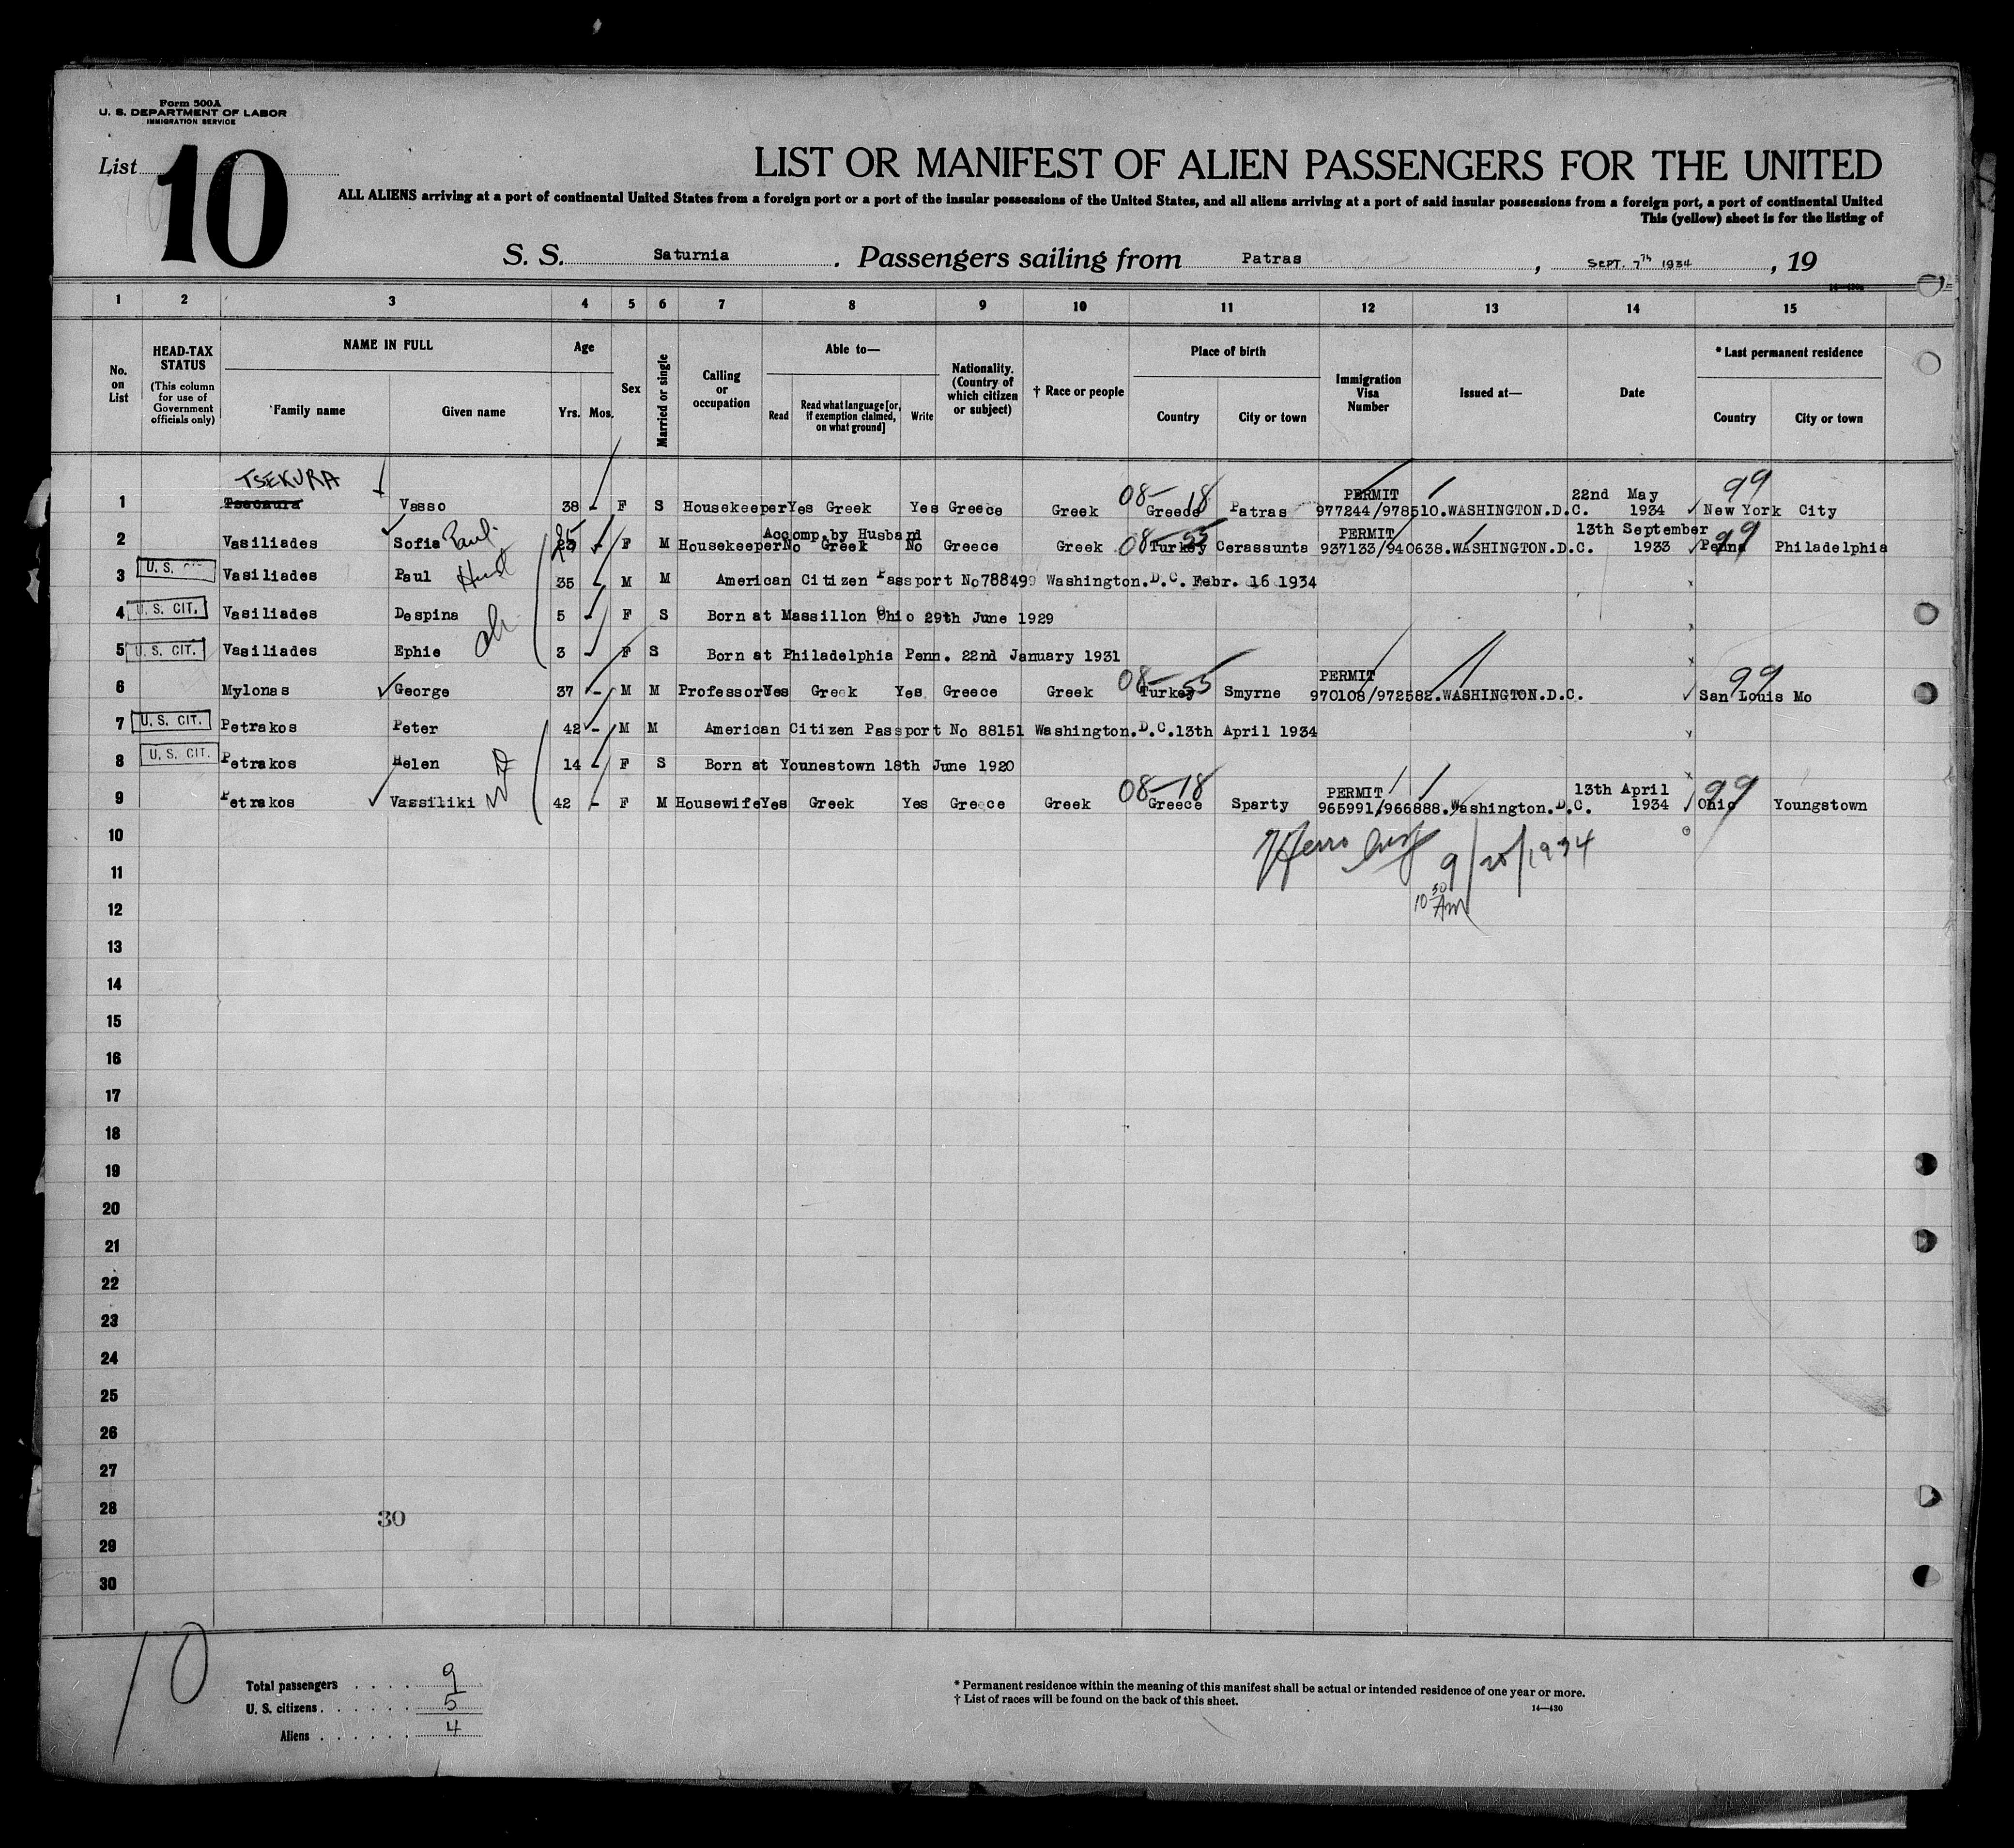 Form 500A
U. S. DEPARTMENT OF LABOR
IMMIGRATION SERVICE
List 10
LIST OR MANIFEST OF ALIEN PASSENGERS FOR THE UNITED
ALL ALIENS arriving at a port of continental United States from a foreign port or a port of the insular possessions of the United States, and all aliens arriving at a port of said insular possessions from a foreign port, a port of continental United
This (yellow) sheet is for the listing of
S. S. Saturnia . Passengers sailing from Patras , SEPT. 7th 1934 , 19
1 2 3 4 5 6 7 8 9 10 11 12 13 14 15
No. on List
HEAD-TAX STATUS (This column for use of Government officials only)
NAME IN FULL Family name Given name
Age Yrs. Mos.
Sex
Married or single
Calling or occupation
Able to— Read Read what language [or, if exemption claimed, on what ground] Write
Nationality. (Country of which citizen or subject)
† Race or people
Place of birth Country City or town
Immigration Visa Number
Issued at—
Date
* Last permanent residence Country City or town
TSEKURA
1 Tsecaura Vasso 38 - F S Housekeeper Yes Greek Yes Greece Greek 08-18 Greece Patras PERMIT 977244/978510. WASHINGTON.D.C. 22nd May 1934 99 New York City
2 Vasiliades Sofia 25 23 F M Housekeeper Accomp. by Husband No Greek No Greece Greek 08-55 Turkey Cerassunts PERMIT 937133/940638. WASHINGTON.D.C. 13th September 1933 99 Penna Philadelphia
3 U. S. CIT. Vasiliades Paul 35 - M M American Citizen Passport No 788499 Washington.D.C. Febr. 16 1934
4 U. S. CIT. Vasiliades Despina 5 - F S Born at Massillon Ohio 29th June 1929
5 U. S. CIT. Vasiliades Ephie 3 - F S Born at Philadelphia Penn. 22nd January 1931
6 Mylonas George 37 - M M Professor Yes Greek Yes Greece Greek 08-55 Turkey Smyrne PERMIT 970108/972582. WASHINGTON.D.C. 99 San Louis Mo
7 U. S. CIT. Petrakos Peter 42 - M M American Citizen Passport No 88151 Washington.D.C. 13th April 1934
8 U. S. CIT. Petrakos Helen 14 - F S Born at Younestown 18th June 1920
9 Petrakos Vassiliki 42 - F M Housewife Yes Greek Yes Greece Greek 08-18 Greece Sparty PERMIT 965991/966888. Washington.D.C. 13th April 1934 99 Ohio Youngstown
10
11 9/20/1934
12 10 30 Am
13
14
15
16
17
18
19
20
21
22
23
24
25
26
27
28
30
29
30
10
Total passengers . . . . 9
U. S. citizens . . . . . . 5
Aliens . . . . . . 4
* Permanent residence within the meaning of this manifest shall be actual or intended residence of one year or more.
† List of races will be found on the back of this sheet.
14—430